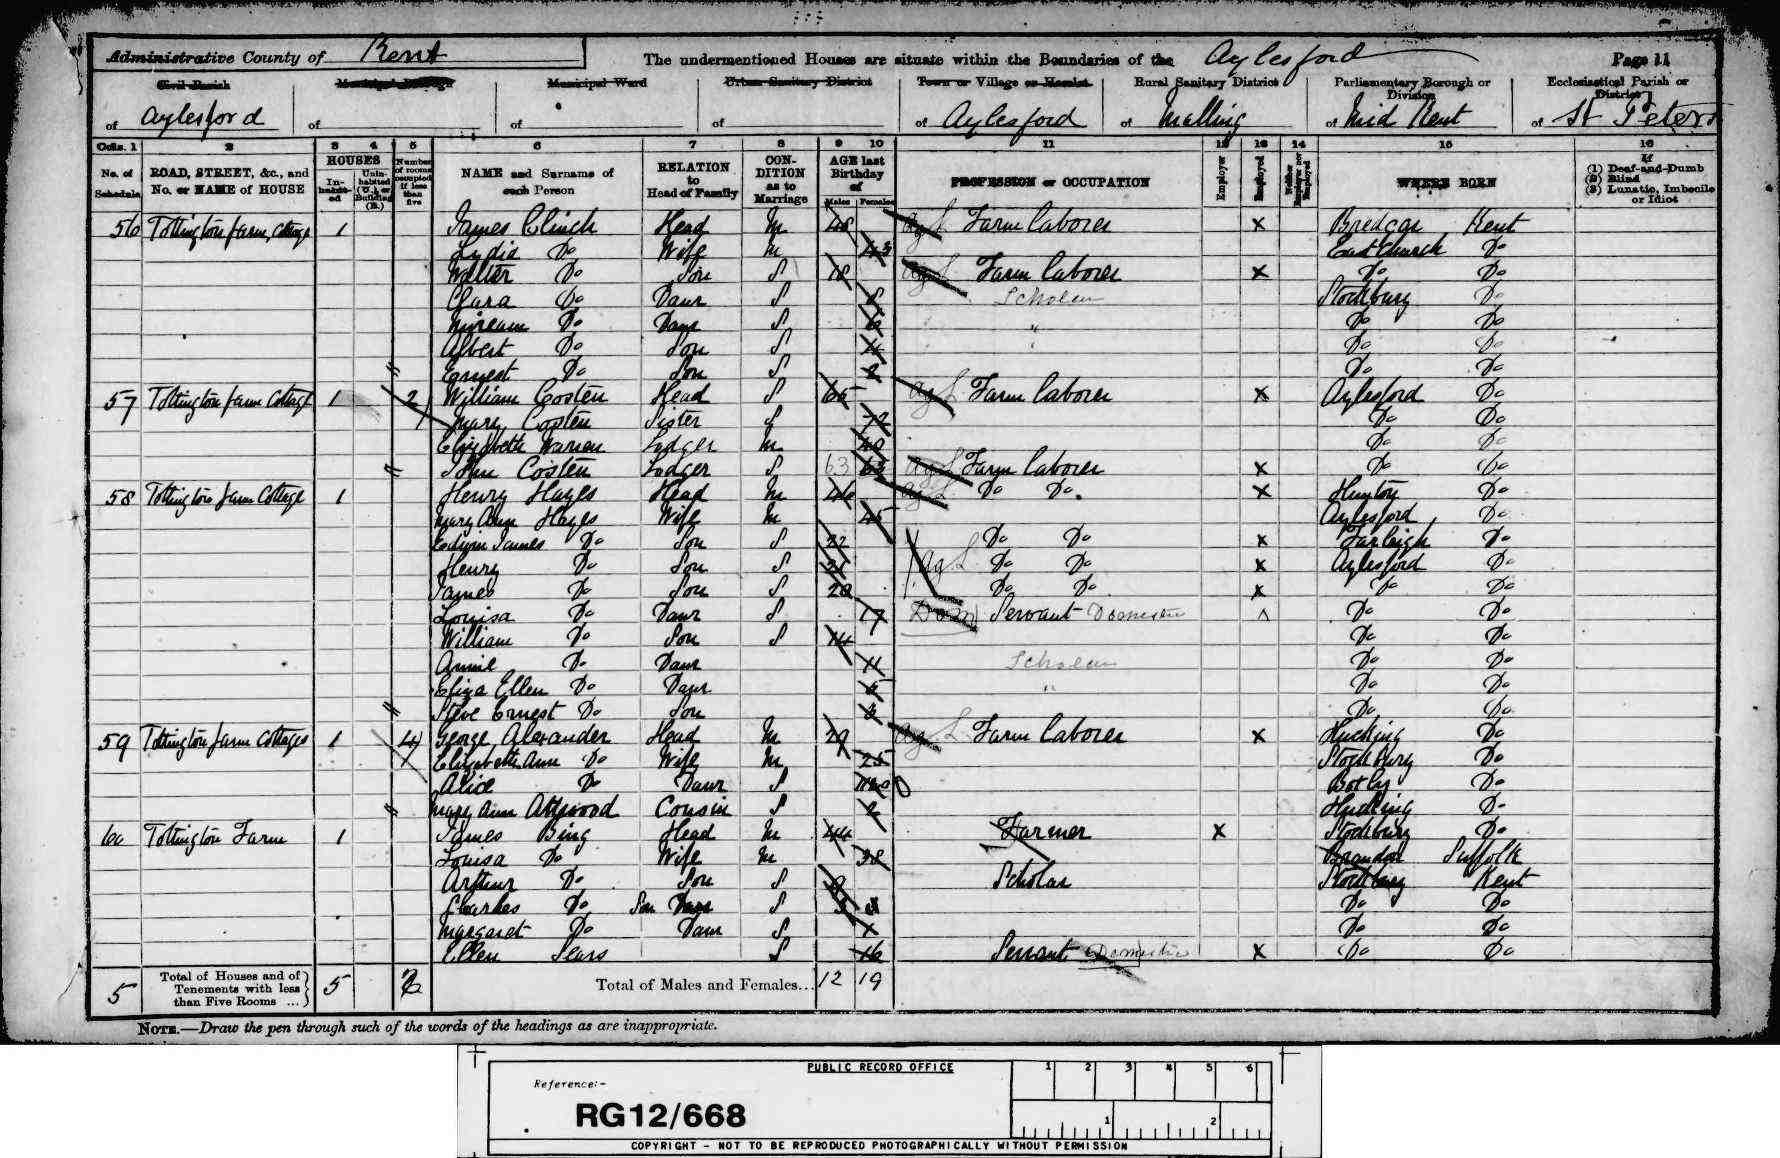 Administrative County of Kent The undermentioned Houses are situate within the Boundaries of the Aylesford Page 11
Civil Parish Municipal Borough Municipal Ward Urban Sanitary District Town or Village or Hamlet Rural Sanitary District Parliamentary Borough or Division Ecclesiastical Parish or District
of Aylesford of of of of Aylesford of Malling of Mid Kent of St Peters
Cols. 1 2 3 4 5 6 7 8 9 10 11 12 13 14 15 16
No. of Schedule ROAD, STREET, &c., and No. or NAME of HOUSE HOUSES Inhabited Uninhabited (U.), or Building (B.) Number of rooms occupied if less than five NAME and Surname of each Person RELATION to Head of Family CONDITION as to Marriage AGE last Birthday of Males Females PROFESSION or OCCUPATION Employer Employed Neither Employer nor Employed WHERE BORN If (1) Deaf-and-Dumb (2) Blind (3) Lunatic, Imbecile or Idiot
56 Tottington farm, Cottage 1 James Clinch Head M 48 Ag L Farm laborer X Bredgar Kent
Lydia Do Wife M 43 East Church Do
Walter Do Son S 18 Ag L Farm laborer X Do Do
Clara Do Daur S 8 Scholar Stockbury Do
Miream Do Daur S 6 " Do Do
Albert Do Son S 4 " Do Do
" Ernest Do Son S 2 Do Do
57 Tottington farm Cottage 1 2 William Costen Head S 65 Ag L Farm laborer X Aylesford Do
Mary Costen Sister S 72 Do Do
Elizabeth Warren Lodger M 40 Do Do
" John Costen Lodger S 63 63 Ag L Farm laborer X Do Do
58 Tottington farm Cottage 1 Henry Hayes Head M 46 Ag L Do Do. X Hunton Do
Mary Ann Hayes Wife M 45 Aylesford Do
Edwin James Do Son S 22 Do Do X Farleigh Do
Henry Do Son S 21 Ag L Do Do X Aylesford Do
James Do Son S 20 Do Do X Do Do
Louisa Do Daur S 17 Dom Servant Domestic ^ Do Do
William Do Son S 14 Do Do
Annie Do Daur 11 Scholar Do Do
Eliza Ellen Do Daur 5 " Do Do
" Steve Ernest Do Son 3 Do Do
59 Tottington farm Cottages 1 4 George Alexander Head M 29 Ag L Farm laborer X Hucking Do
Elizabeth Ann Do Wife M 25 Stockbury Do
Alice Do Daur S Do
" Mary Ann Attwood Cousin S 2 Hucking Do
60 Tottington Farm 1 James Bing Head M 44 Farmer X Stockbury Do
Louisa Do Wife M 38 Suffolk
Arthur Do Son S 9 Scholar Stockbury Kent
Charles Do Son Daur S 3 3 Do Do
Margaret Do Daur S 1 Do Do
Ellen Sears S 16 Servant Domestic X Do Do
5 Total of Houses and of Tenements with less than Five Rooms ... 5 2 Total of Males and Females... 12 19
NOTE.—Draw the pen through such of the words of the headings as are inappropriate.
PUBLIC RECORD OFFICE 1 2 3 4 5 6
Reference:-
RG12/668 1 2
COPYRIGHT - NOT TO BE REPRODUCED PHOTOGRAPHICALLY WITHOUT PERMISSION